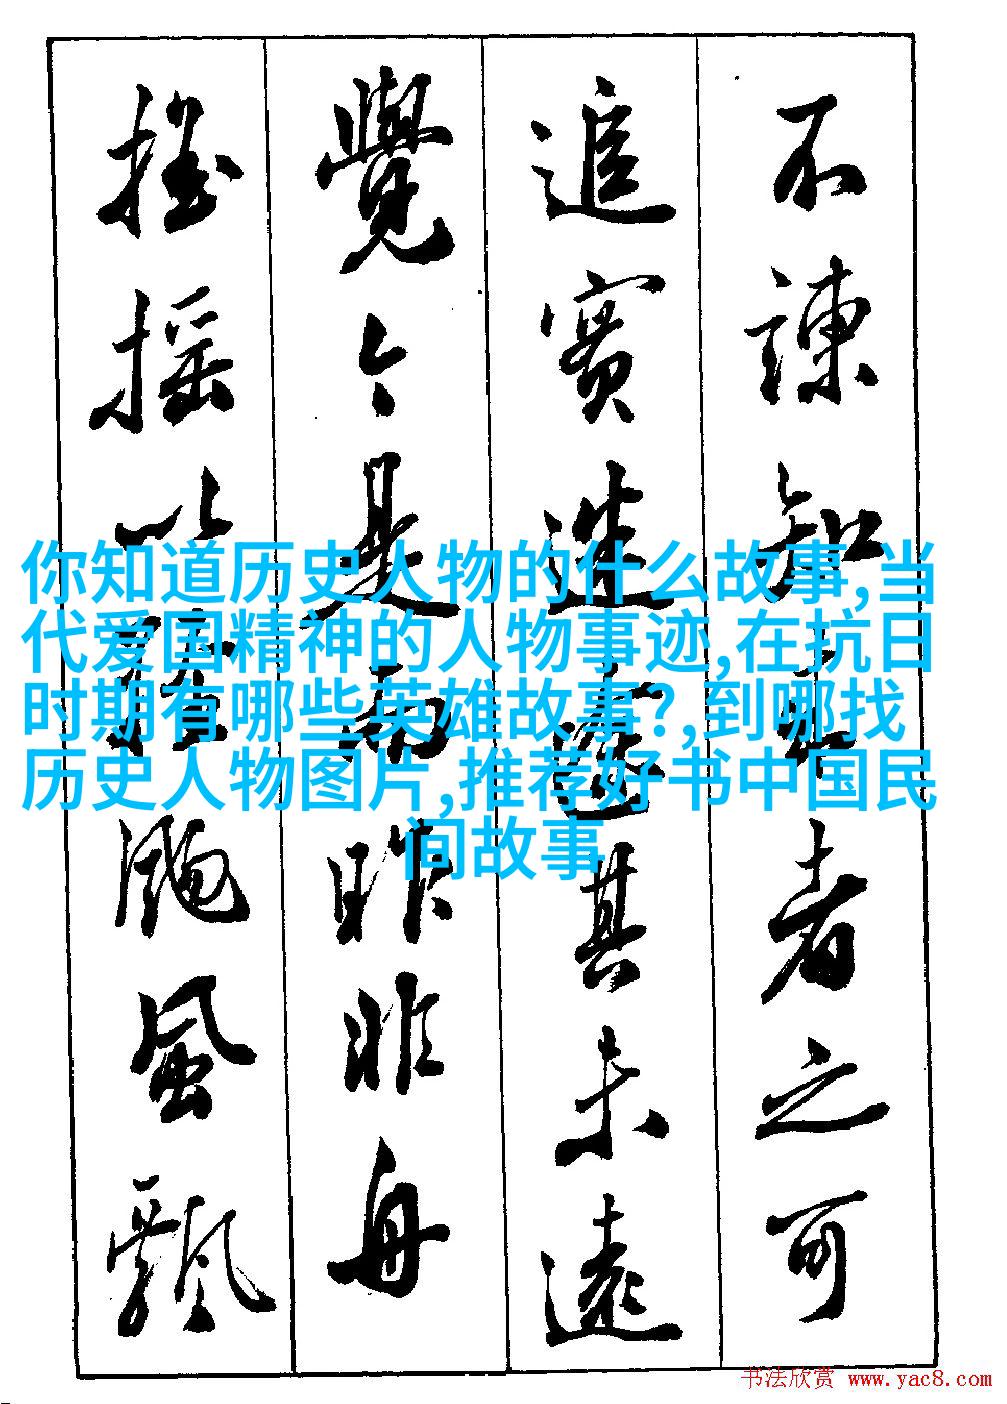 不諫知来者之可
追實迷途其未遠
覺今是而昨非舟
摇摇以輕颺風飄
你知道历史人物的什么故事,当
代爱国精神的人物事迹,在抗日
时期有哪些英雄故事?,到哪找
历史人物图片,推荐好书中国民
间故事
书法欣赏 www.yac8.com